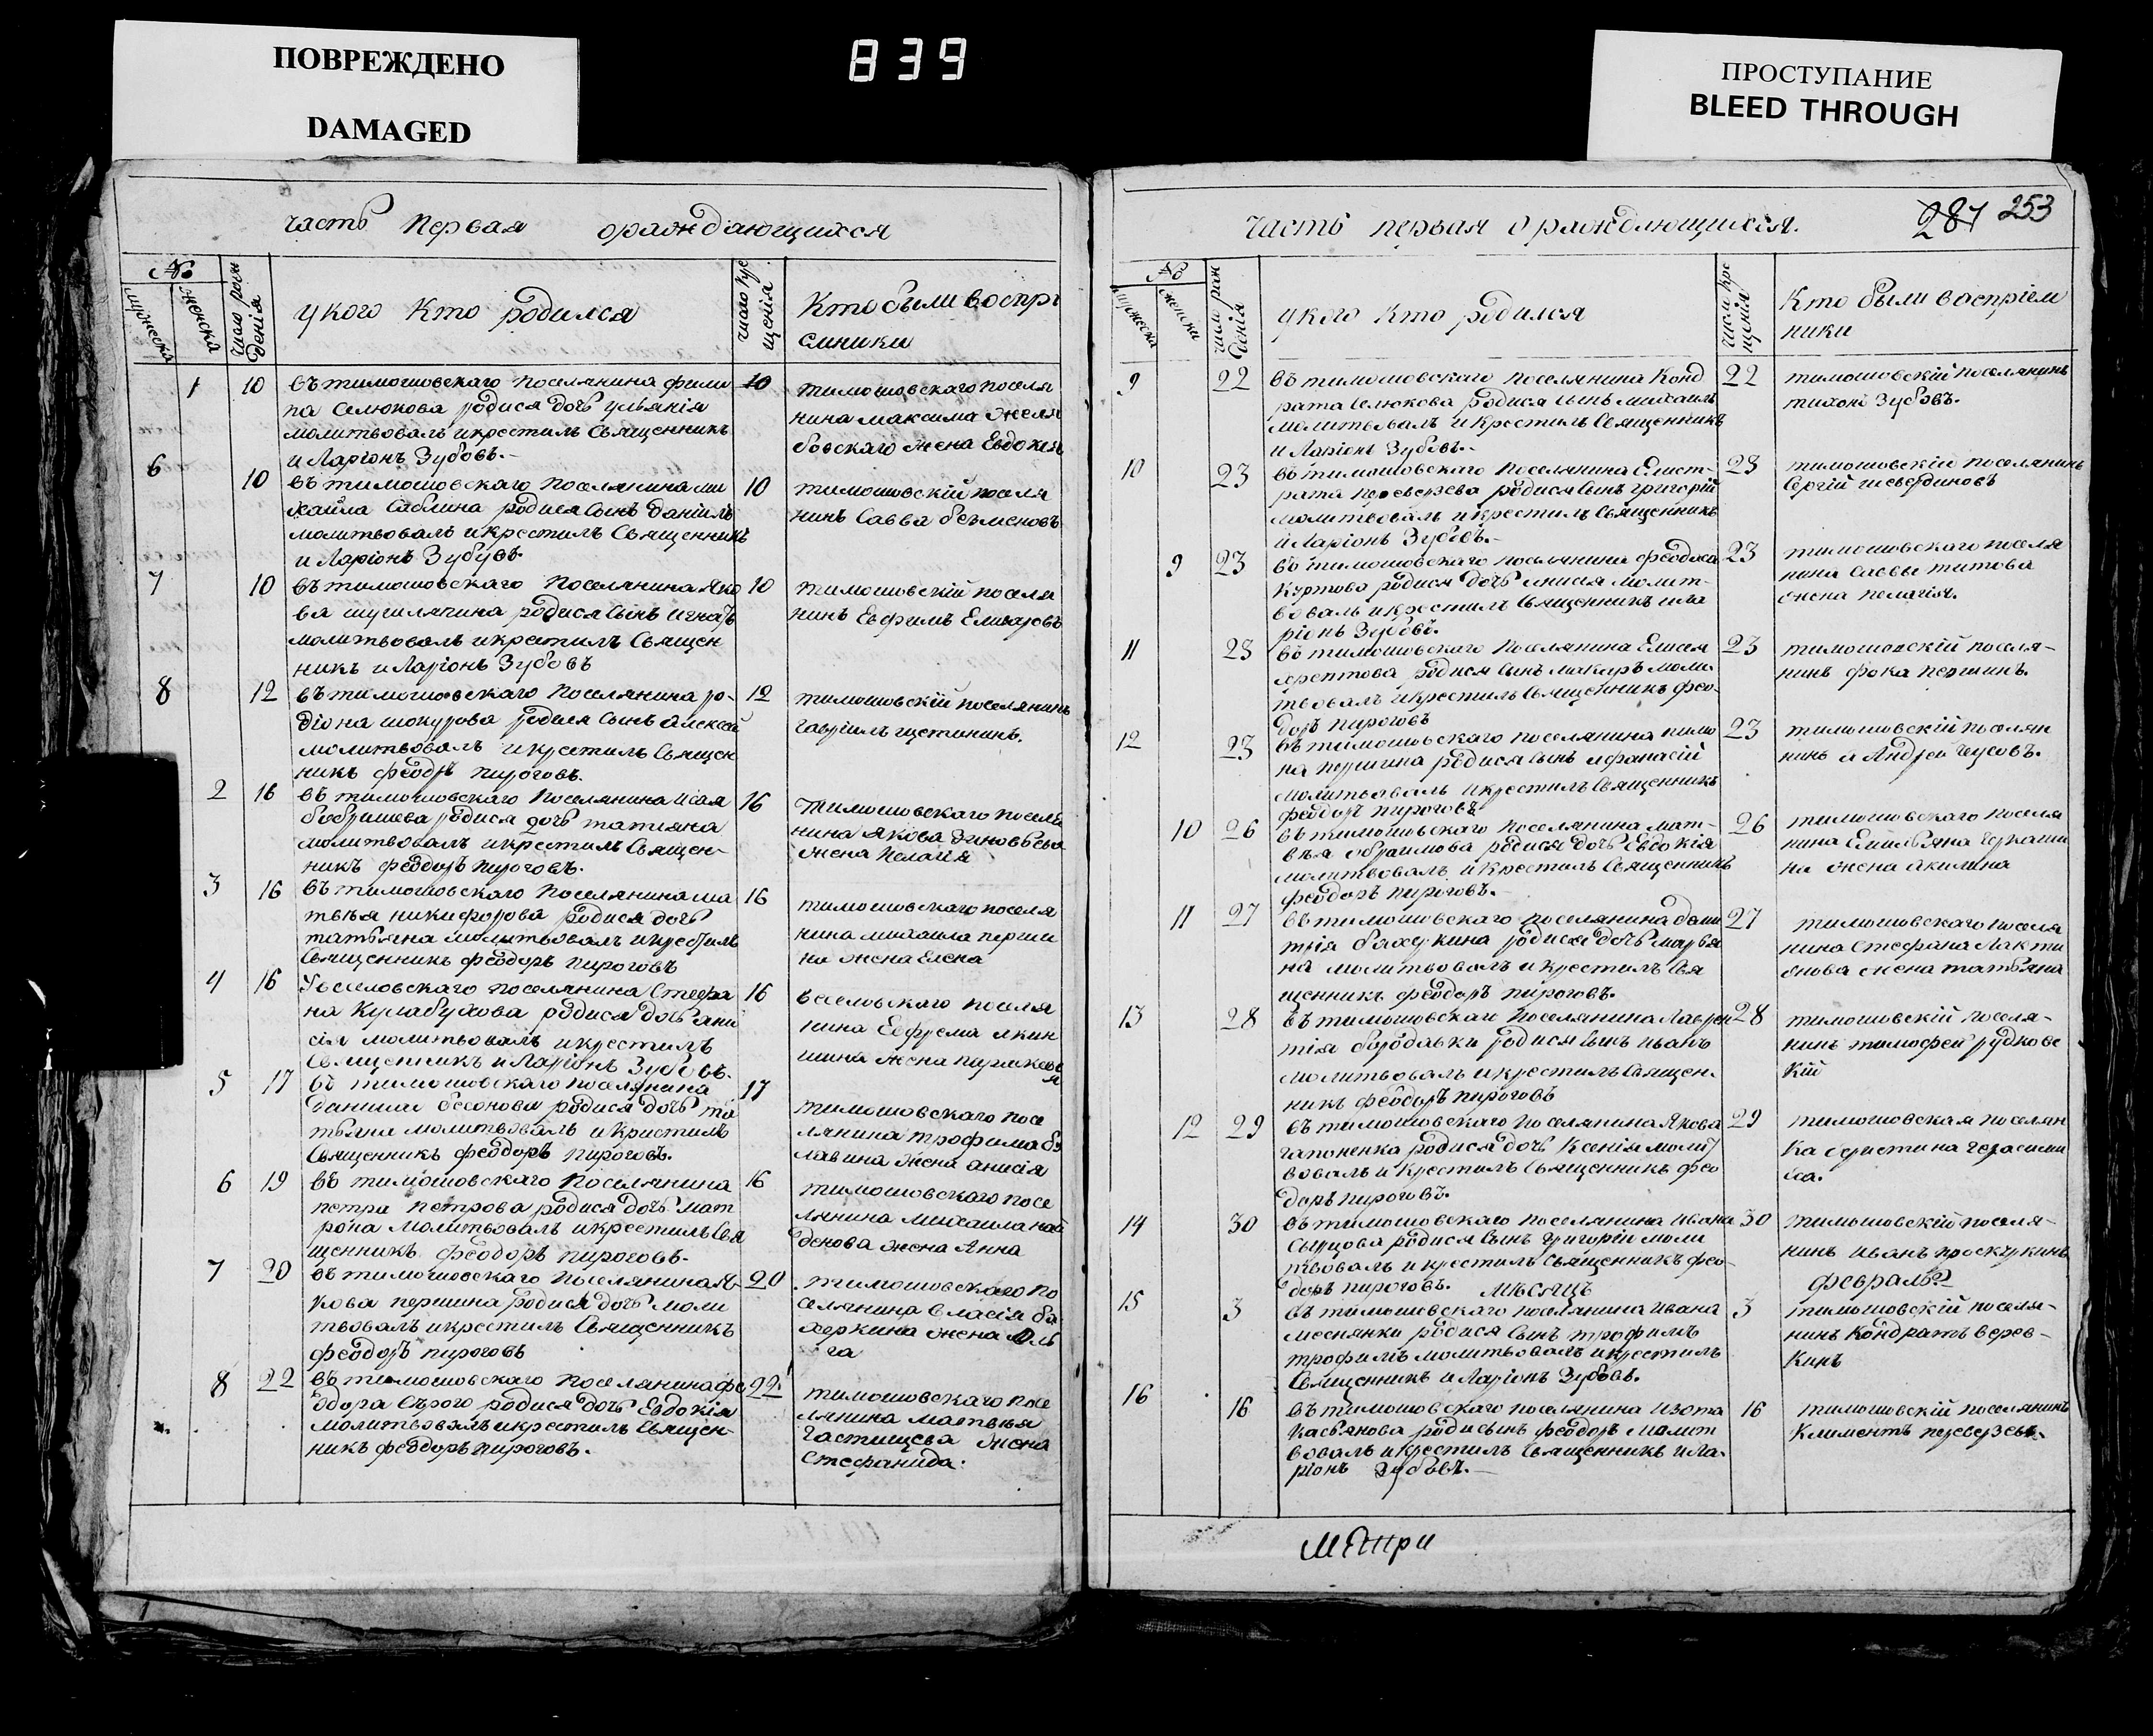 ПОВРЕЖДЕНО
DAMAGED
839
ПРОСТУПАНИЕ
BLEED THROUGH
часть первая ораждающихся
№
мужеска
женска
число рож
денія
укого кто родился
число кре
щенія
Кто были воспрі
емники
1 10 въ тимошовскаго поселянина фили 10
па Селюкова родися дочь ульянія
молитвовалъ и крестилъ Священникъ
и Ларіонъ Зубовъ.
тимошовскаго поселя
нина максима желя
бовскаго жена Евдокея
6 10 въ тимошовскаго поселянина ми 10
хайла Саблина родися Сынъ даніилъ
молитвовалъ и крестилъ Священникъ
и Ларіонъ Зубувъ.
тимошовскій поселя
нинъ Савва безменовъ
7 10 въ тимошовскаго поселянина Яко 10
ва шугилягина родися Сынъ игнатъ
молитвовалъ и крестилъ Священ
никъ и Ларіонъ Зубовъ
тимошовскій поселя
нинъ Евфимъ Елизаровъ
8 12 въ тимошовскаго поселянина ро- 12
діона шокурова родися Сынъ алексей
молитвовалъ и крестилъ Священ
никъ феодръ пироговъ.
тимошовскій поселянинъ
гавріилъ щетининъ.
2 16 въ тимошовскаго поселянина исая 16
бобришева родися дочь татияна
молитвовалъ и крестилъ Священ-
никъ феодоръ пироговъ.
тимошовскаго поселя
нина якова зиновьева
жена Пелагія
3 16 въ тимошовскаго поселянина ма 16
твѣя никифорова родися дочь
татьяна молитвовалъ и крестилъ
Священникъ феодоръ пироговъ
тимошовскаго поселя
нина михаила перши
на жена Елена
4 16 Увселовскаго поселянина Стефа 16
на Кулабухова родися дочь ани
сія молитвовалъ и крестилъ
Священникъ и Ларіонъ Зубовъ.
вселовскаго поселя
нина Ефрема якин
шина жена параскев
я
5 17 въ тимошовскаго поселянина 17
данила бесонова родися дочь та
тьяна молитвовалъ и кристилъ
Священникъ феодоръ пироговъ.
тимошовскаго посе
лянина трофима бу
лавина жена анисія
6 19 въ тимошовскаго поселянина 16
петра петрова родися дочь мат
рона молитвовалъ и крестилъ Свя
щенникъ феодоръ пироговъ.
тимошовскаго посе
лянина михаила най
денова жена Анна
7 20 въ тимошовскаго поселянина я- 20
кова першина родися дочь моли
твовалъ и крестилъ Священникъ
феодоръ пироговъ
тимошовскаго по
селянина власія ба
херкина жена Оль
га
8 22 въ тимошовскаго поселянина фе 22
одора Сѣрого родися дочь Евдокія
молитвовалъ и крестилъ Священ-
никъ феодоръ пироговъ.
тимошовскаго посе
лянина матвѣя
Частищева жена
Стефанида.
часть первая ораждающихся.
281 253
№
мужеска
женска
число рож
денія
укого кто родился
число кре
щенія
Кто были воспріем
ники
9 22 въ тимошовскаго поселянина Конд 22
рата Селюкова родися Сынъ михаилъ
молитвовалъ и крестилъ Священникъ
и Ларіонъ Зубовъ.
тимошовскій поселянинъ
тихонъ Зубовъ.
10 23 въ тимошовскаго поселянина Елист- 23
рата переверзева родися Сынъ григорій
молитвовалъ и крестилъ Священникъ
и Ларіонъ Зубовъ.
тимошовскій поселянинъ
Сергій шевердиновъ
9 23 въ тимошовскаго поселянина феодоса 23
Куртова родися дочь анисія молит-
вовалъ и крестилъ Священникъ ила
ріонъ Зубовъ.
тимошовскаго поселя
нина Саввы титова
жена пелагія.
11 23 въ тимошовскаго поселянина Елисея 23
лофтова родися Сынъ макаръ моли-
твовалъ и крестилъ Священникъ фео-
доръ пироговъ
тимошовскій поселя-
нинъ фока першинъ.
12 23 въ тимошовскаго поселянина пимо 23
на першина родися Сынъ афанасій
молитвовалъ и крестилъ Священникъ
феодоръ пироговъ
тимошовскій поселян
нинъ а Андрей Чусовъ.
10 26 въ тимошовскаго поселянина мат- 26
вѣя абраимова родися дочь Евдокія
молитвовалъ и крестилъ Священникъ
феодоръ пироговъ.
тимошовскаго поселя
нина Емильяна Черкаши
на жена акилина
11 27 въ тимошовскаго поселянина дими 27
трія бахеркина родися дочь марья
на молитвовалъ и крестилъ Свя
щенникъ феодоръ пироговъ.
тимошовскаго поселя
нина Стефана Лакти
онова жена татьяна
13 28 въ тимошовскаг поселянина Лаврен 28
тія бородавки родися Сынъ иванъ
молитвовалъ и крестилъ Священ-
никъ феодоръ пироговъ
тимошовскій поселя-
нинъ тимофей рудковс
кій
12 29 въ тимошовскаго поселянина Якова 29
гапоненка родися дочь Ксенія молит
вовалъ и крестилъ Священникъ фео
доръ пироговъ.
тимошовская поселян
ка христина герасими
ва.
14 30 въ тимошовскаго поселянина ивана 30
Сырцова родися Сынъ григорій моли
твовалъ и крестилъ Священникъ фео-
доръ пироговъ. мѣсяцъ
тимошовскій поселя-
нинъ иванъ проскуринъ
февраль
15 3 въ тимошовскаго поселянина ивана 3
меснянки родися Сынъ трофимъ
трофимъ молитвовалъ и крестилъ
Священникъ и Ларіонъ Зубовъ.
тимошовскій поселя-
нинъ Кондратъ верев-
кинъ
16 16 въ тимошовскаго поселянина изота 16
Касьянова родисынъ феодоръ молит
вовалъ и крестилъ Священникъ ила-
ріонъ Зубовъ.
тимошовскій поселянинъ
Климентъ переверзевъ.
Метри